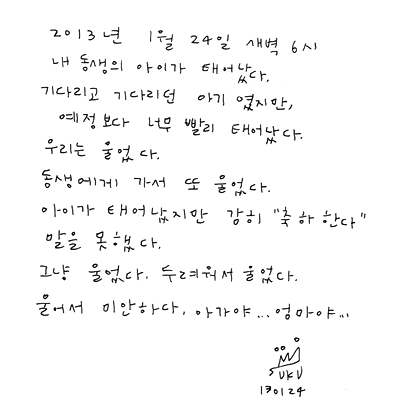 2013년 1월 24일 새벽 6시
내 동생의 아이가 태어났다.
기다리고 기다리던 아기 였지만,
예정보다 너무 빨리 태어났다.
우리는 울었다.
동생에게 가서 또 울었다.
아이가 태어났지만 감히 "축하한다"
말을 못했다.
그냥 울었다. 두려워서 울었다.
울어서 미안하다, 아가야... 엄마야...
SUKU
130124